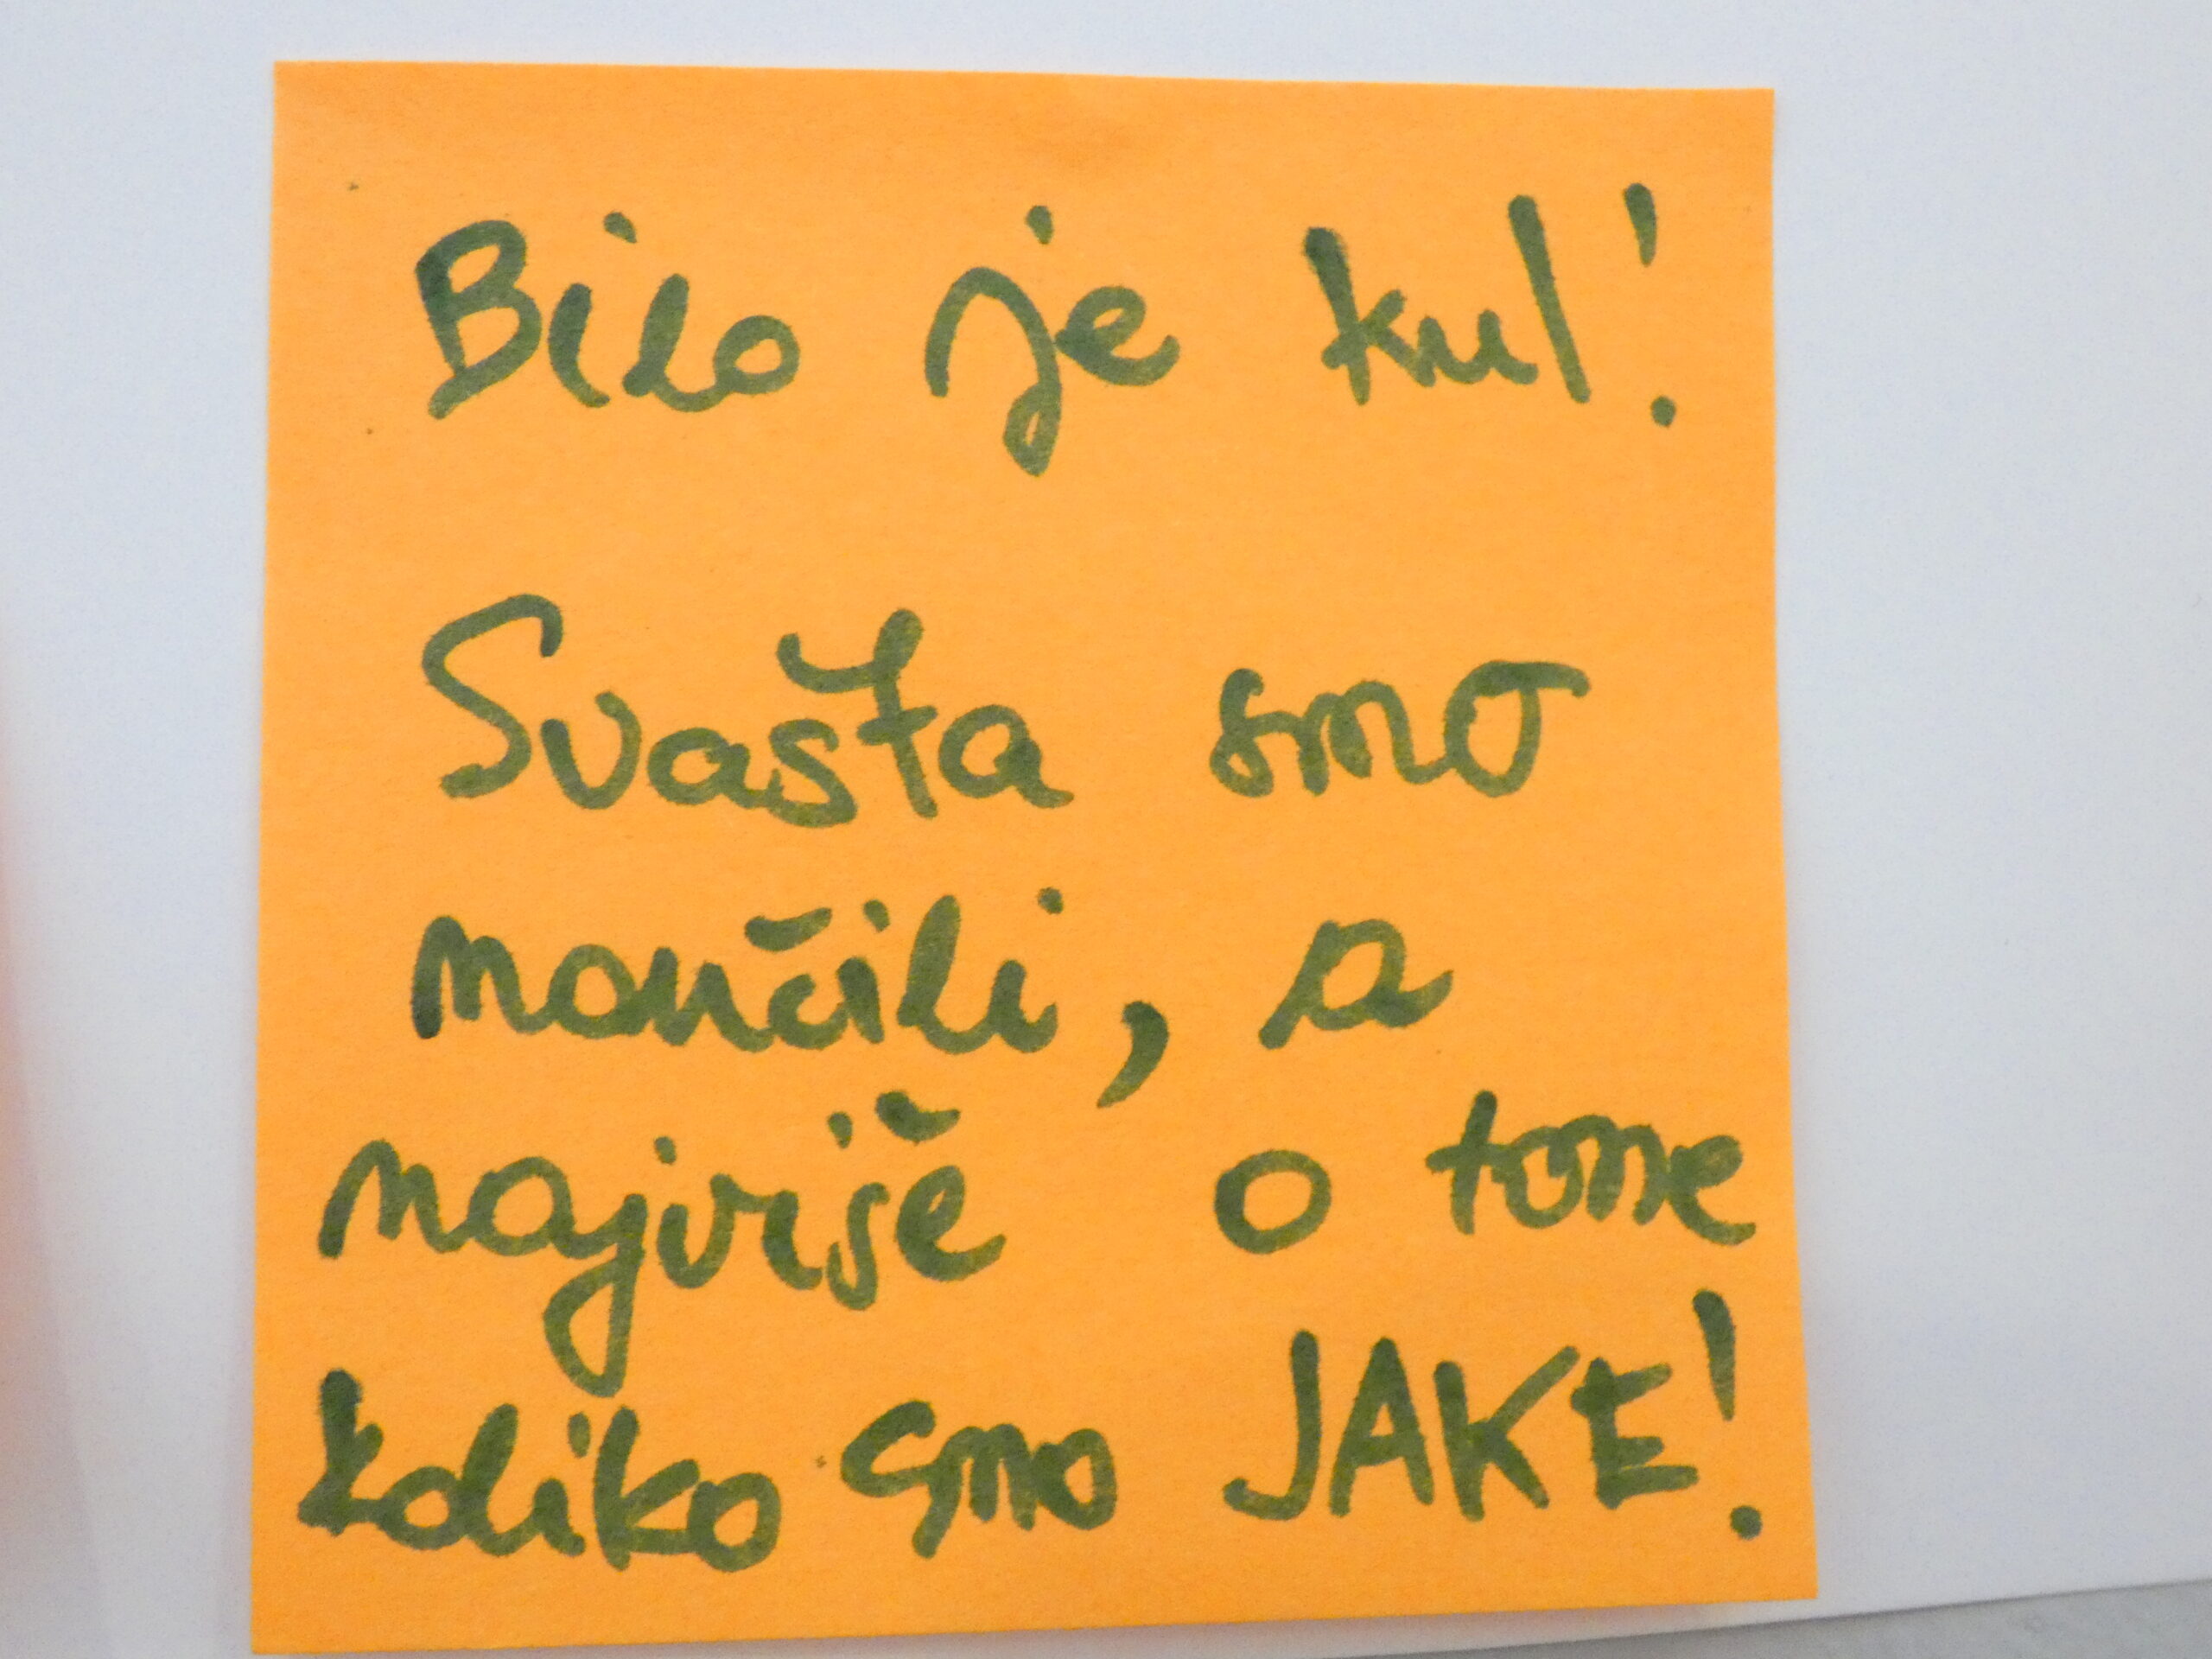 Bilo je kul!
Svašta smo
naučili, a
najviše o tome
koliko smo JAKE!